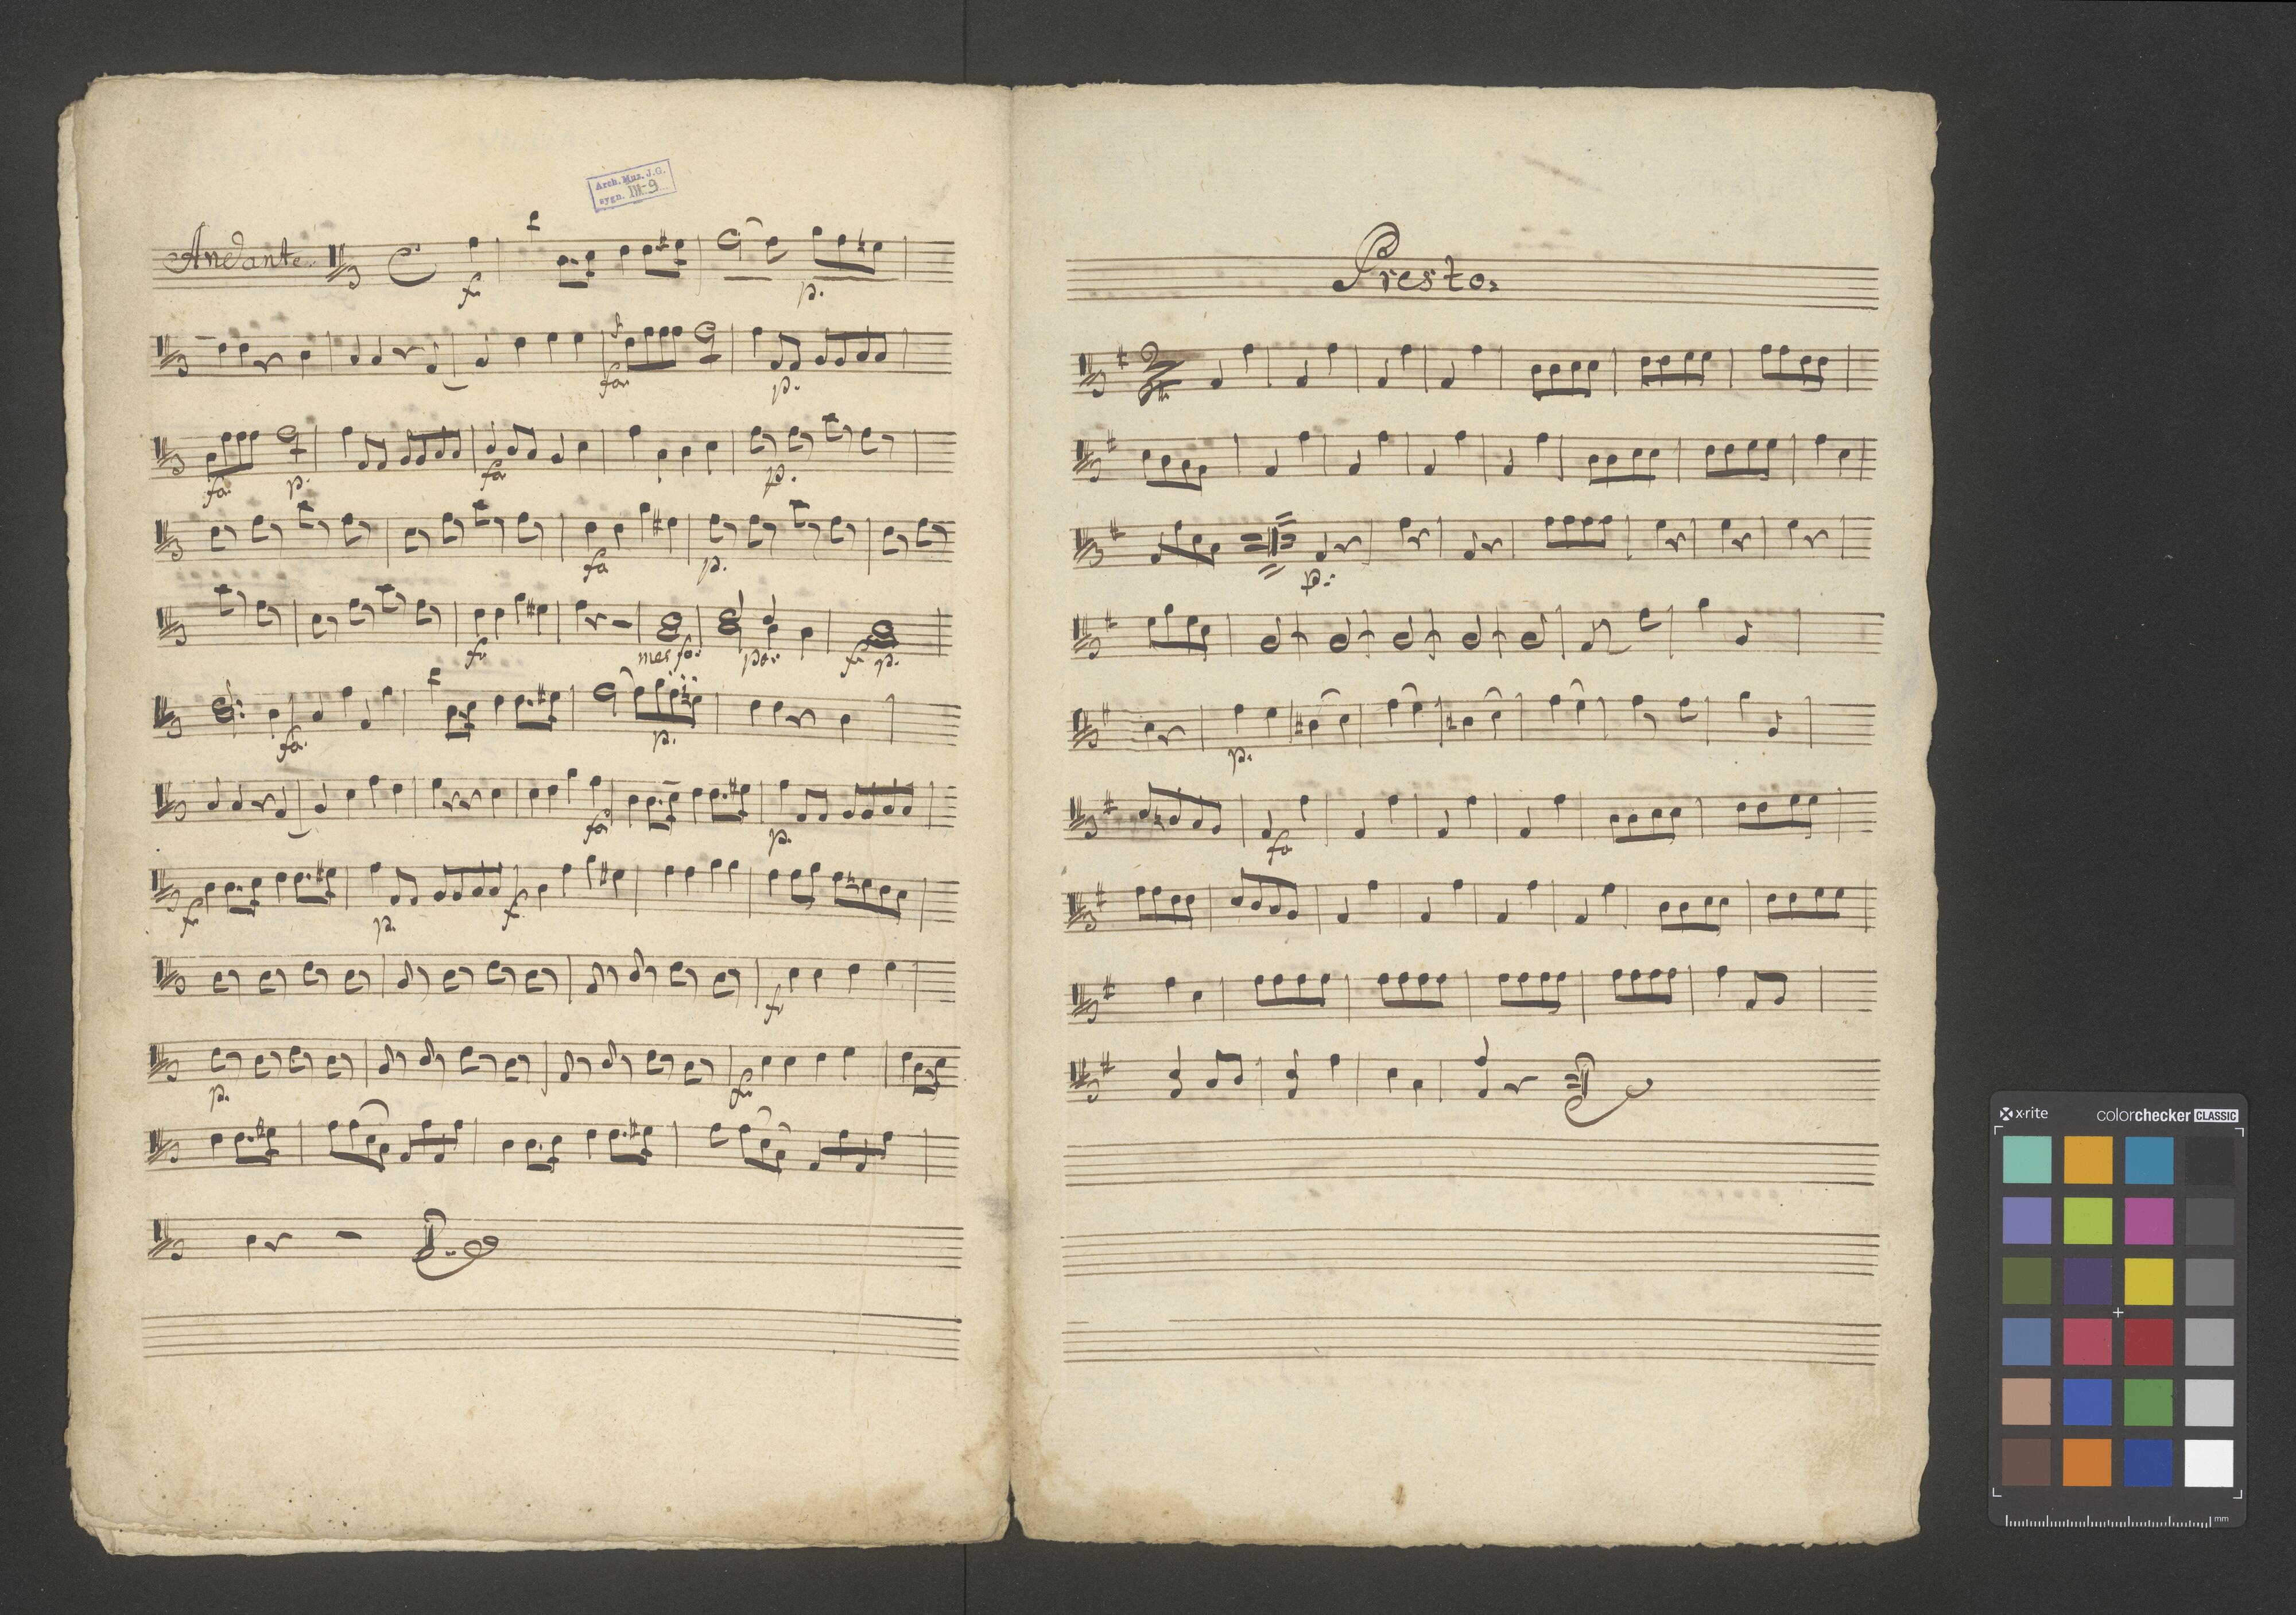 Arch. Mus. J.G.
sygn. III-9
Andante.
f
p.
fo.
p.
fo.
p.
fo
p.
fo
p.
fr
mez fo.
po.
fr
p.
fo.
p.
fo
p.
fr
p.
fr
fr
p.
fr
Presto.
p.
p.
fo
x·rite
colorchecker CLASSIC
mm